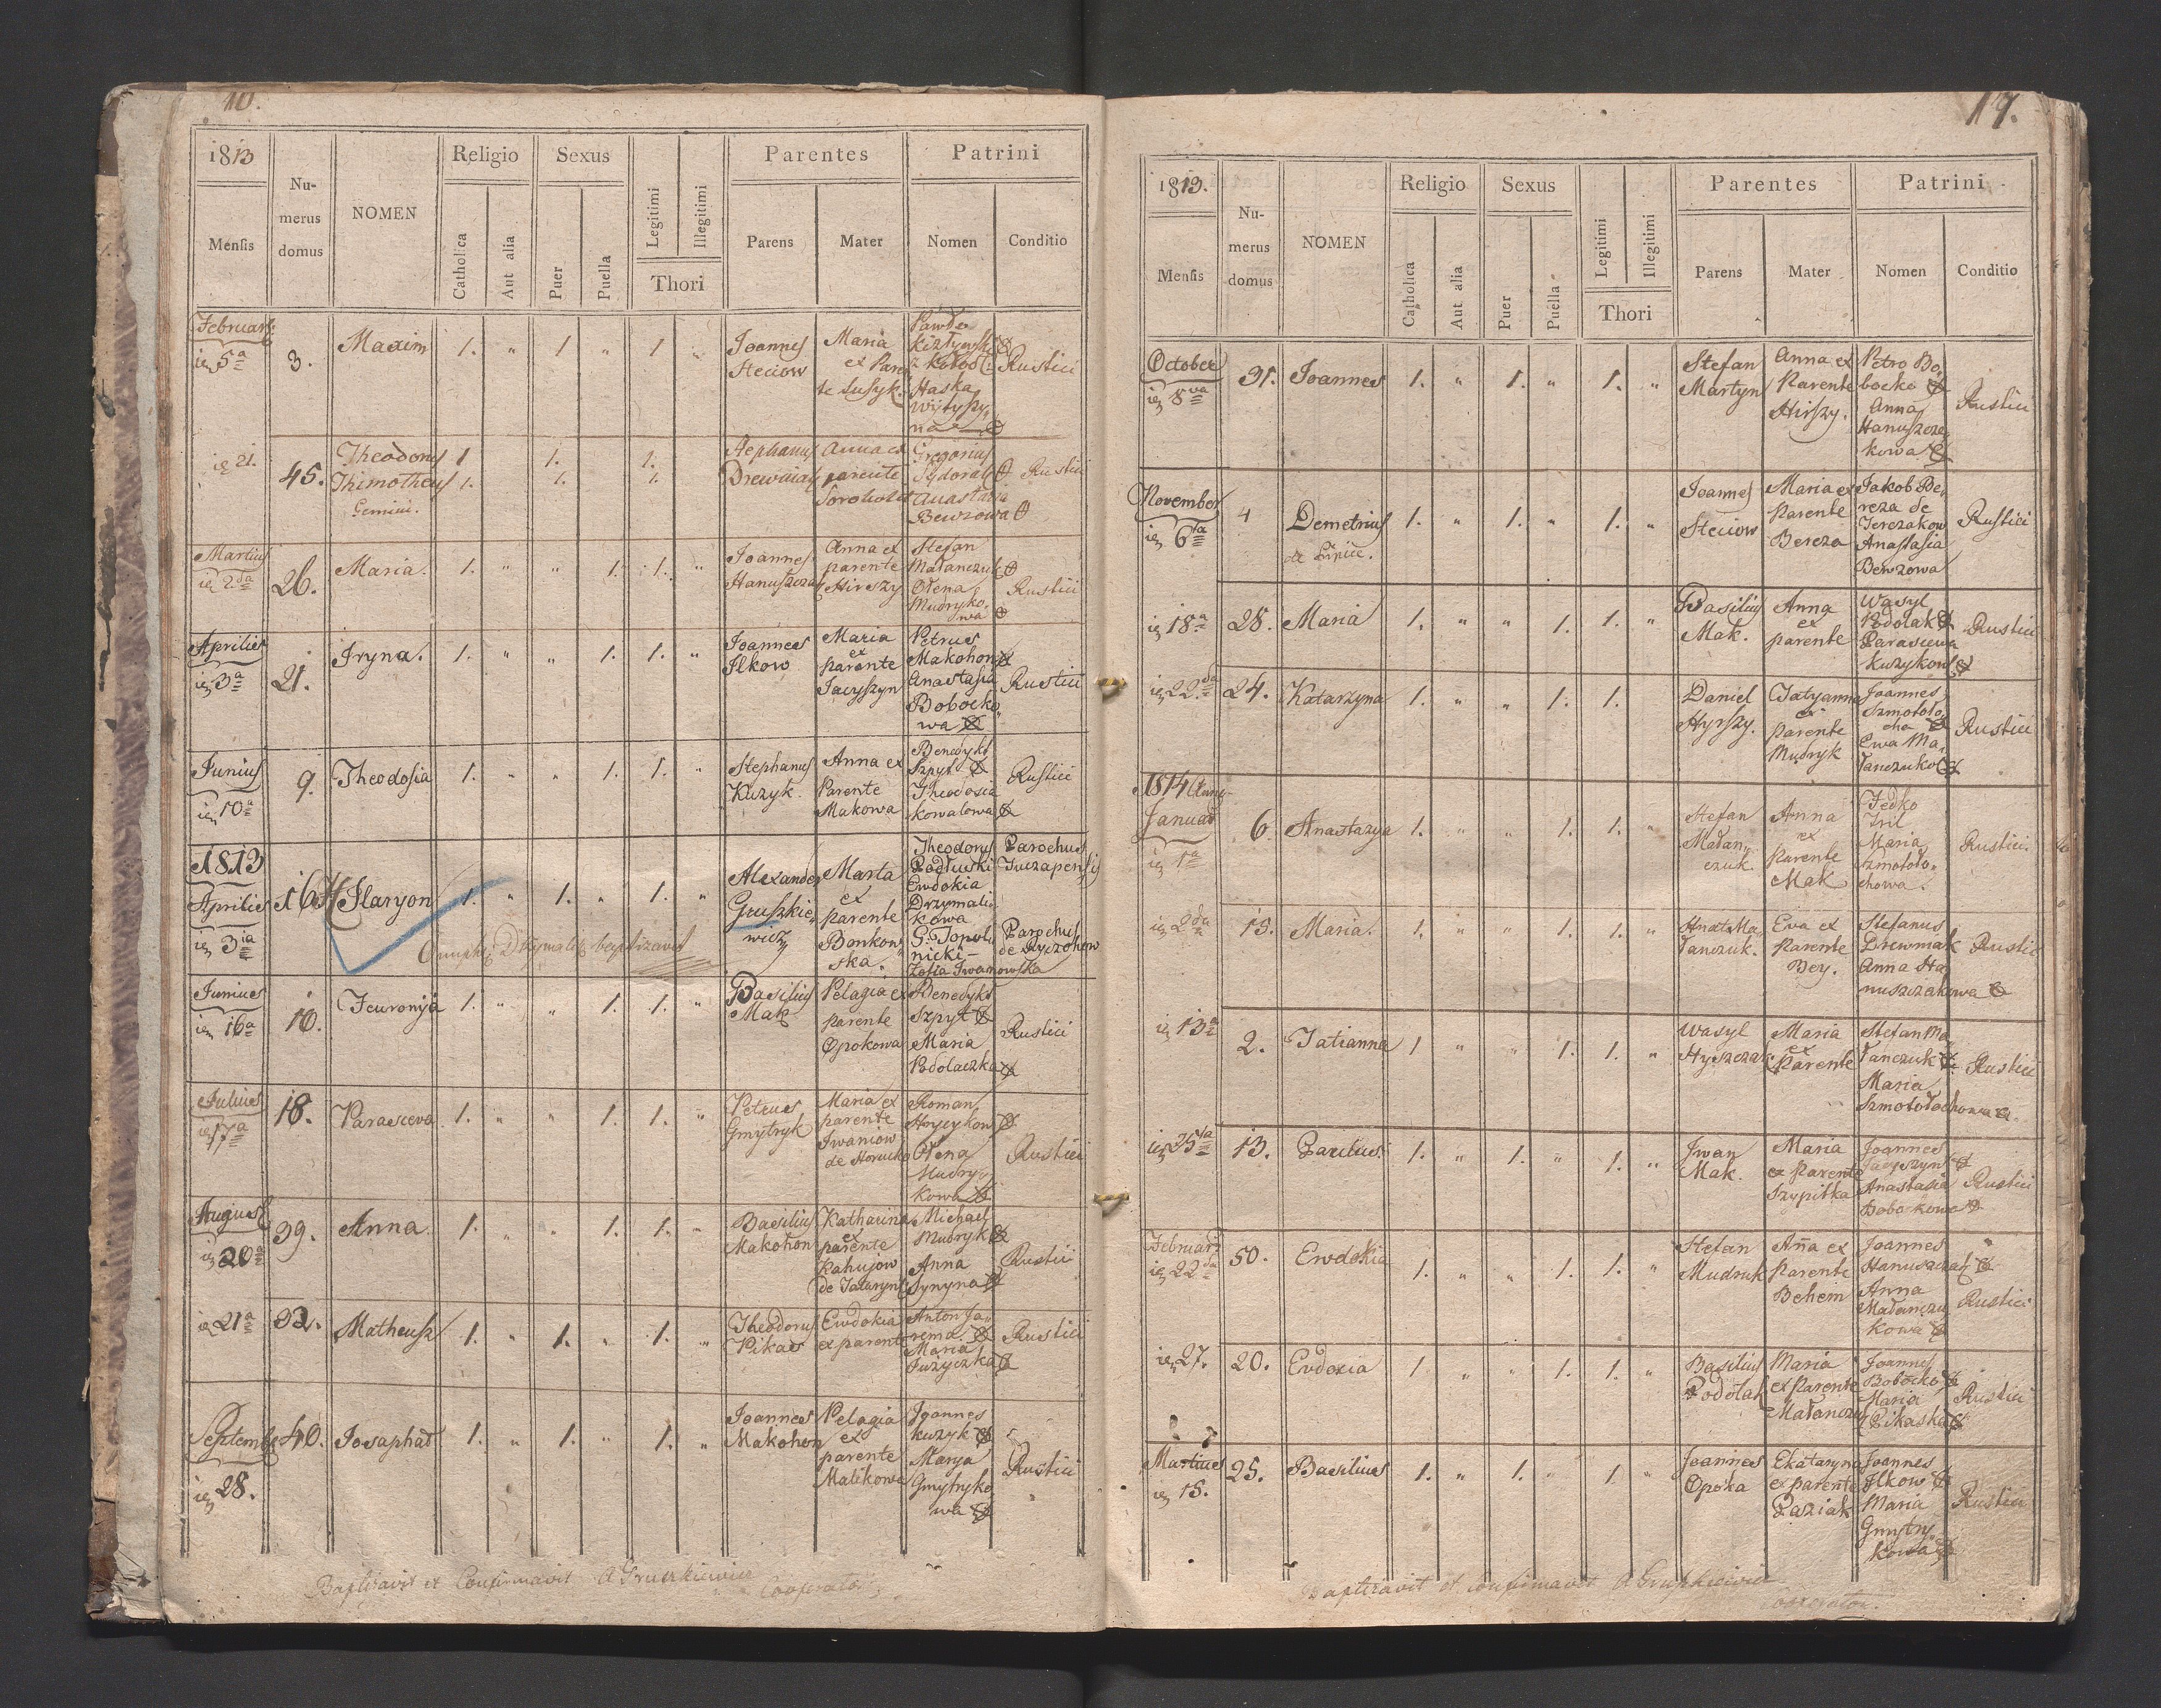 10.
1813
Mensis
Nu-
merus
domus
NOMEN
Religio
Catholica
Aut alia
Sexus
Puer
Puella
Legitimi
Illegitimi
Thori
Parentes
Parens
Mater
Patrini
Nomen
Conditio
Februar
5ª
3.
Maxim
1. " 1 " 1 "
Joannes
Steciow
Maria
ex Paren
te Lusyk.
Pawło
Haska
Rustici
21.
45.
Theodorus
Thimotheus
Gemini.
1 1. 1.
1. 1. 1.
Stephanus
Drewniak
Anna ex
parente
Gregorius
Sydorak
Anastasia
Bewzowa
Rustici
Martius
2da
26.
Maria.
1. " " 1. 1. "
Joannes
Hanuszczak
Anna ex
parente
Hirszy
Stefan
Małanczuk
Ołena
Mudryko
wa
Rustici
Aprilies
3ª
21.
Iryna.
1. " " 1. 1. "
Joannes
Ilkow
Maria
ex
parente
Jacyszyn
Petrus
Makohon
Anastasia
Bobocko
wa
Rustici
Junius
10ª
9.
Theodosia
1. " " 1. 1. "
Stephanus
Kuzyk.
Anna ex
Parente
Makowa
Benedykt
Szpyt
Theodosia
Kowalowa
Rustici
1813
Aprilies
3ia
16
Hilaryon
1. " 1. " 1. "
Alexander
Gruszkie
wicz
Marta
ex
parente
Bonkow
ska.
Theodorus
Podłuski
Ewdokia
Drzymali
kowa
G. Topol
nicki
Zofia Iwanowska
Parochus
Parochus
de Ryczohow
Drzymalik baptizavit
Junius
16ª
10.
Feuronija
1. " " 1. 1. "
Basilius
Mak
Pelagia ex
parente
Opokowa
Benedykt
Szpyt
Maria
Podolaczka
Rustici
Julius
17ª
18.
Parasceva
1. " " 1. 1. "
Petrus
Gmytryk
Maria ex
parente
Iwaniow
Roman
Hrycykow
Ołena
Mudry
kowa
Rustici
August
20ª
39.
Anna.
1. " " 1. 1. "
Basilius
Makohon
Katharina
ex
parente
Kahujow
Michael
Mudryk
Anna
Synyna
Rustici
21ª
32.
Matheusz
1. " 1. " 1. "
Theodorus
Pikas
Ewdokia
ex parent
Anton Ja
rema.
Maria
Rustici
Septembr
28.
40.
Josaphat
1. " 1. " 1. "
Joannes
Makohon
Pelagia
ex
parente
Malikowa
Joannes
Kuzyk
Marya
Gmytryko
wa
Rustici
Baptizavit et Confirmavit AGruszkiewicz
Cooperator
17.
1813.
Mensis
Nu-
merus
domus
NOMEN
Religio
Catholica
Aut alia
Sexus
Puer
Puella
Legitimi
Illegitimi
Thori
Parentes
Parens
Mater
Patrini
Nomen
Conditio
October
8va
31.
Joannes
1. " 1. " 1. "
Stefan
Martyn
Anna ex
Parente
Hirszy.
Petro Bo
bocko
Anna
Hanuszcza
kowa
Rustici
November
6ta
4
Demetrius
1. " 1. " 1. "
Joannes
Steciow
Maria ex
Parente
Bereza
Jakob Be
reza de
Terczakow
Anastasia
Bewzowa
Rustici
18ª
28.
Maria
1. " " 1. 1. "
Basilius
Mak.
Anna
ex
parente
Wasyl
Podolak
Parascewa
Kuzykowa
Rustici
22da
24.
Katarzyna
1. " " 1. 1.
Daniel
Hyrszy.
Tatyanna
ex
Parente
Mudryk
Joannes
Szmotoło
cha
Ewa Ma
łanczuko
Rustici
1814 Anno
Januar
1ª
6.
Anastazya
1. " " 1. 1. "
Stefan
Małan
czuk.
Anna
ex
Parente
Mak
Fedko
Maria
Szmotoło
chowa.
Rustici.
2da
19.
Maria.
1. " " 1. 1. "
Hnat Ma
łanczuk.
Eva ex
Parente
Bey.
Stefanus
Drewniak
Anna Ha
nuszczakowa
Rustici
13ª
2.
Tatianna
1 " " 1. 1. "
Wasyl
Hyszczak
Maria
ex
Parente
Stefan Ma
łanczuk
Maria
Szmotołochowa
Rustici
25ta
13.
Paulus.
1. " 1. " 1. "
Iwan
Mak.
Maria
ex parente
Szypitka
Joannes
Jacyszyn
Anastasia
Bobockowa
Rustici
Februar
22da
50.
Ewdokia
1. " " 1. 1. "
Stefan
Mudruk
Aña ex
Parente
Behem
Joannes
Hanuszczak
Anna
Małanczu
kowa
Rustici
27.
20.
Eudoxia
1. " " 1. 1. "
Basilius
Podolak
Maria
ex Parente
Małanczu
Joannes
Bobocko
Maria
Pikaska
Rustici
Martius
15.
25.
Basilius
1. " 1. " 1. "
Joannes
Opoka
Ekataryna
ex parente
Paziak
Joannes
Ilkow
Maria
Gmytry
kowa
Rustici
Baptizavit et confirmavit AGruszkiewicz
Cooperator.